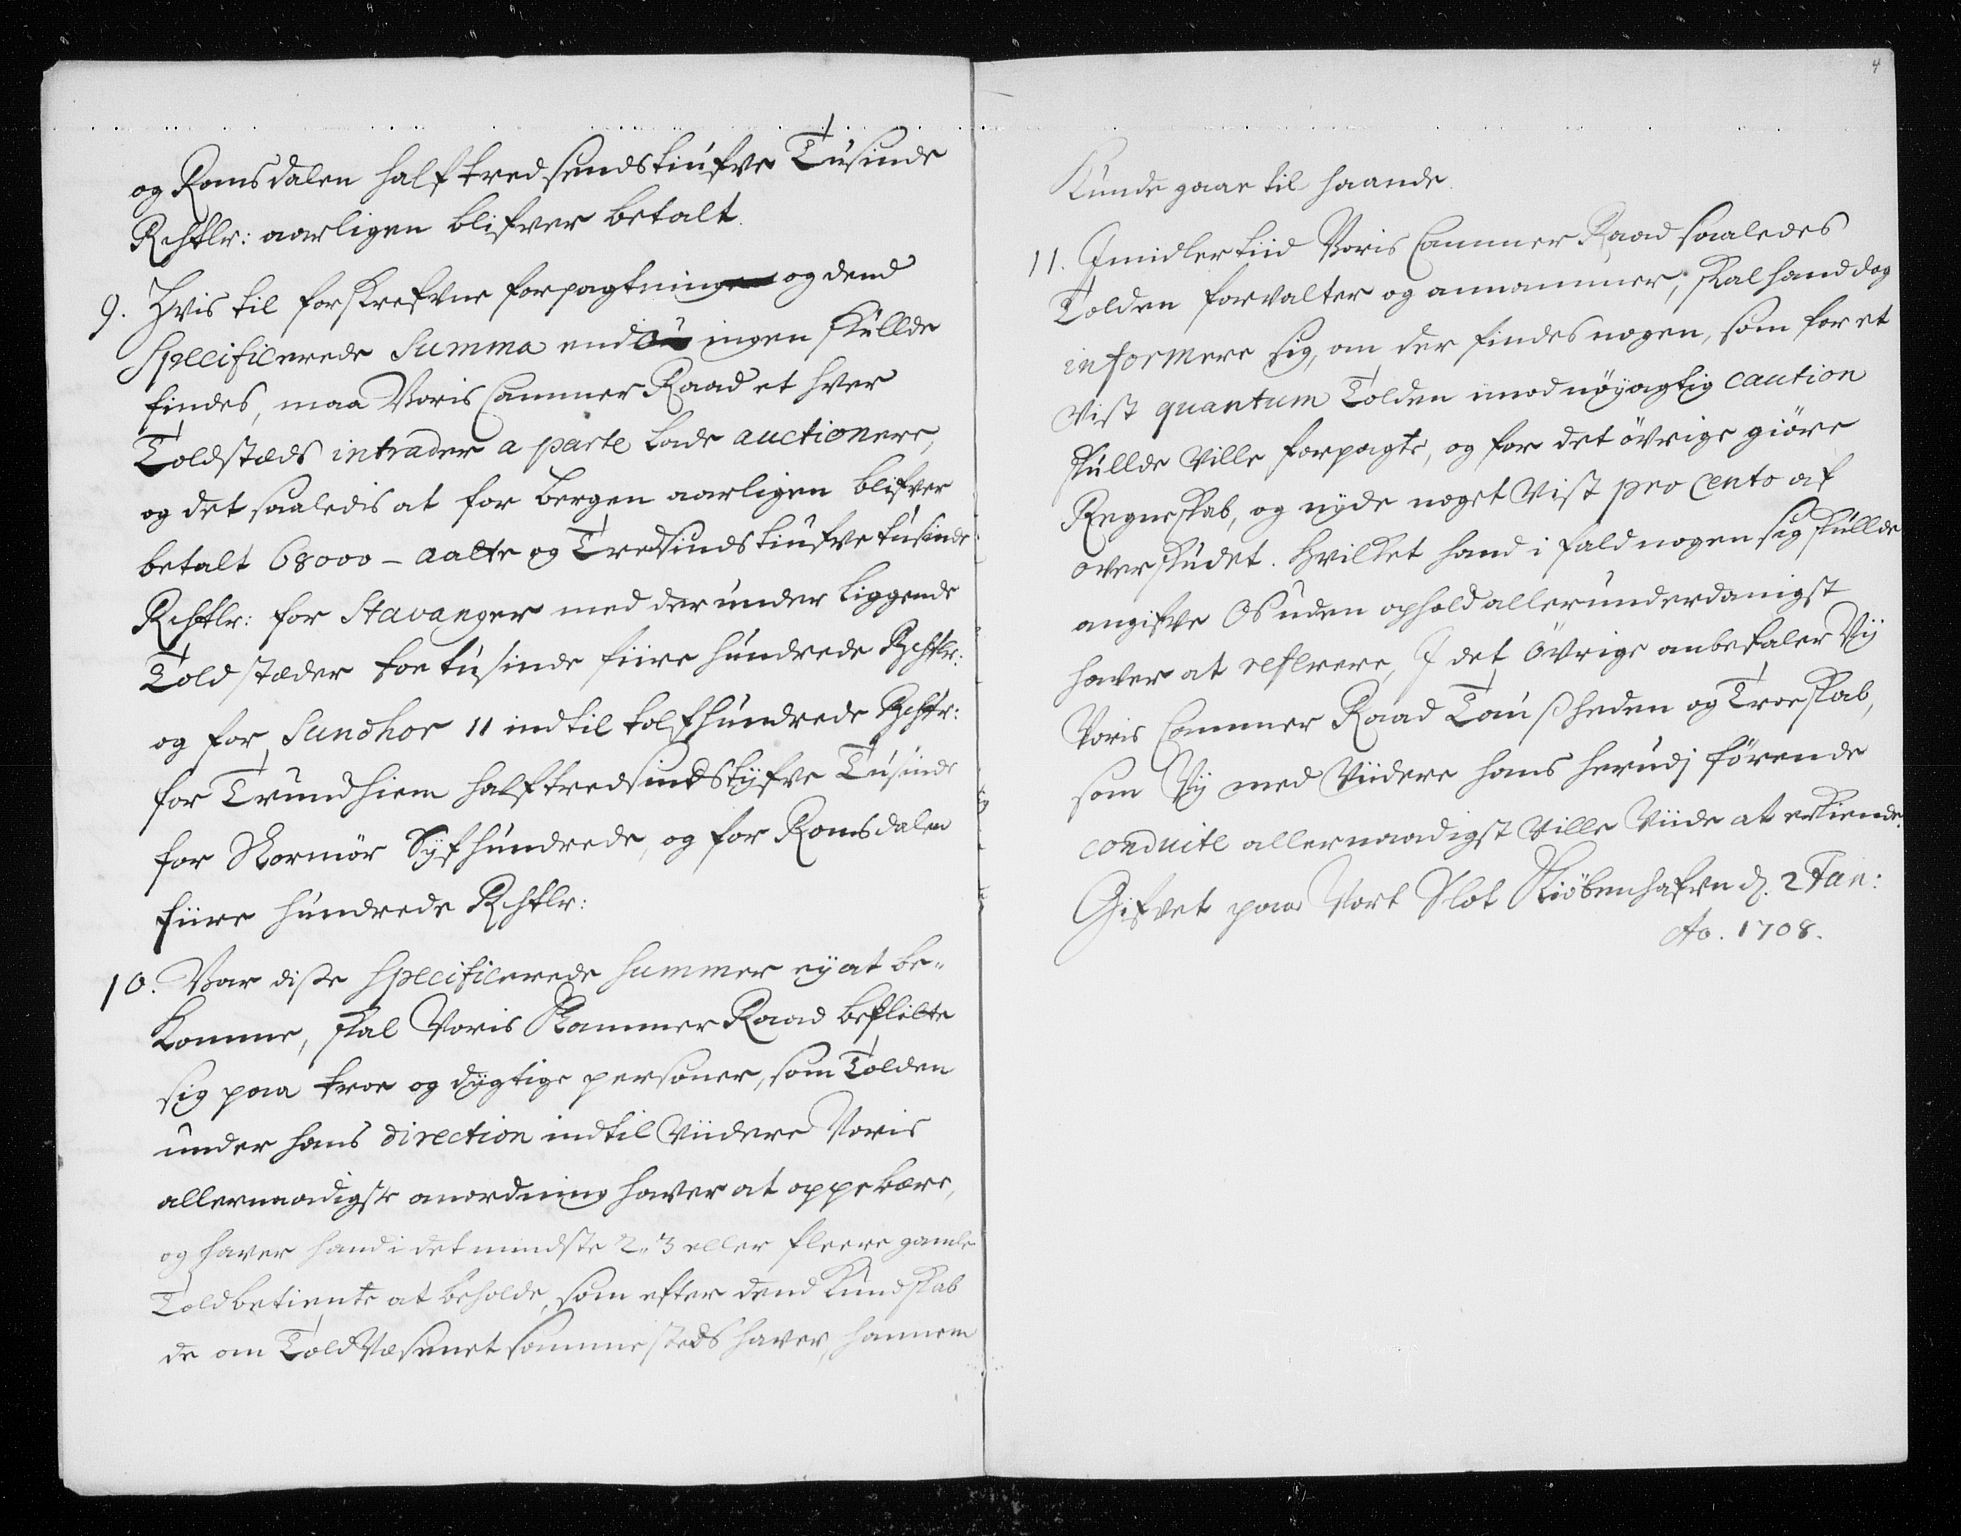 og Romsdalen halftredsendstiufve Tusinde
Rchdlr: aarligen blifver betalt.
9. Hvis til forskrefvne forpagtning og dend
Specificerede Summa endu ingen skullde
findes, maa Voris Cammer Raad et hver
Toldstæds intrader a parte lade auctionere,
og det saaledis at for Bergen aarligen blifver
betalt 68000 – aatte og Tresindstiufve tusinde
Rchdlr: for Stavanger med der under liggende
Toldstæder toe tusinde fiire hundrede Rchdr:
og for Sundhor 11 indtil tolf hundrede Rchdr:
for Trundhiem halftredsindstyfve Tusinde
for Normør Syfhundrede, og for Romsdalen
fiire hundrede Rchdlr:
10. Var disse Specificerede Summer ey at be-
komme, skal Voris Kammer Raad beflitte
sig paa troe og dygtige personer, som Tolden
under hans direction indtil viidere Voris
allernaadigste anordning haver at oppebære,
og haver hand i det mindste 2 3 eller fleere gamle
Toldbetiente at beholde, som efter dend Kundskab
de om Told Væsenet sammesteds haver, hannem
4
Kunde gaae til haande.
11. Imidlertiid Voris Cammer Raad saaledes
Tolden forvalter og annammer, skal hand dog
informere sig, om der findes nogen, som for et
vist quantum Tolden imod nøyagtig caution
skullde ville forpagte, og for det øvrige giøre
Regneskab, og nyde noget vist pro cento af
overskudet. Hvilket hand i fald nogen sig skullde
angifve Os uden ophold allerunderdanigst
haver at referere, I det øvrige anbefaler Vy
Voris Cammer Raad Taußheden og Troeskab,
som Vy med Viidere hans herudj førende
conduite allernaadigst ville Viide at erkiende.
Gifvet paa Vort Slot Kiøbenhafvn d. 2 Jan:
Ao. 1708.